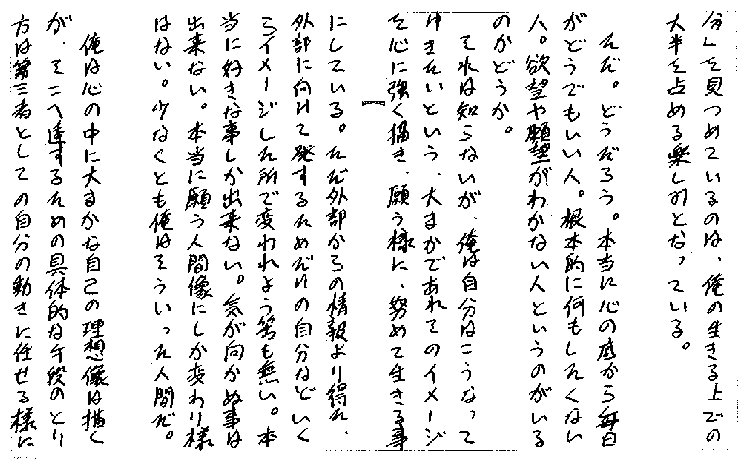 分」を見つめているのは、俺の生きる上での
大半を占める楽しみとなっている。
ただ。どうだろう。本当に心の底から毎日
がどうでもいい人。根本的に何もしたくない
人。欲望や願望がわかない人というのがいる
のかどうか。
それは知らないが、俺は自分はこうなって
ゆきたいという、大まかであれそのイメージ
を心に強く描き、願う様に、努めて生きる事
にしている。ただ外部からの情報より得た、
外部に向けて発するためだけの自分などいく
らイメージした所で変われよう筈も無い。本
当に好きな事しか出来ない。気が向かぬ事は
出来ない。本当に願う人間像にしか変わり様
はない。少なくとも俺はそういった人間だ。
俺は心の中に大まかな自己の理想像は描く
が、そこへ達するための具体的な手段のとり
方は第三者としての自分の動きに任せる様に